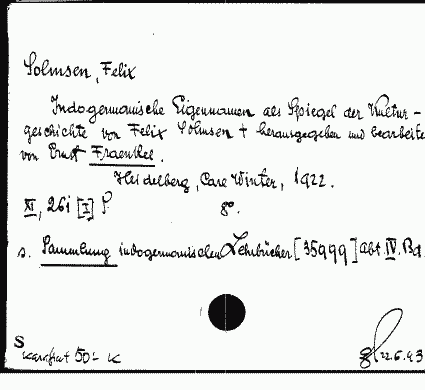 Solmsen, Felix
Indogermanische Eigennamen als Spiegel der Kultur-
geschichte von Felix Solmsen † herausgegeben und bearbeitet
von Ernst Fraenkel.
Heidelberg, Carl Winter, 1922.
XI, 261 [1] S. 8º.
s. Sammlung indogermanischer Lehrbücher [35999] Abt. IV. Bd.
S
50'- K
22.6.43